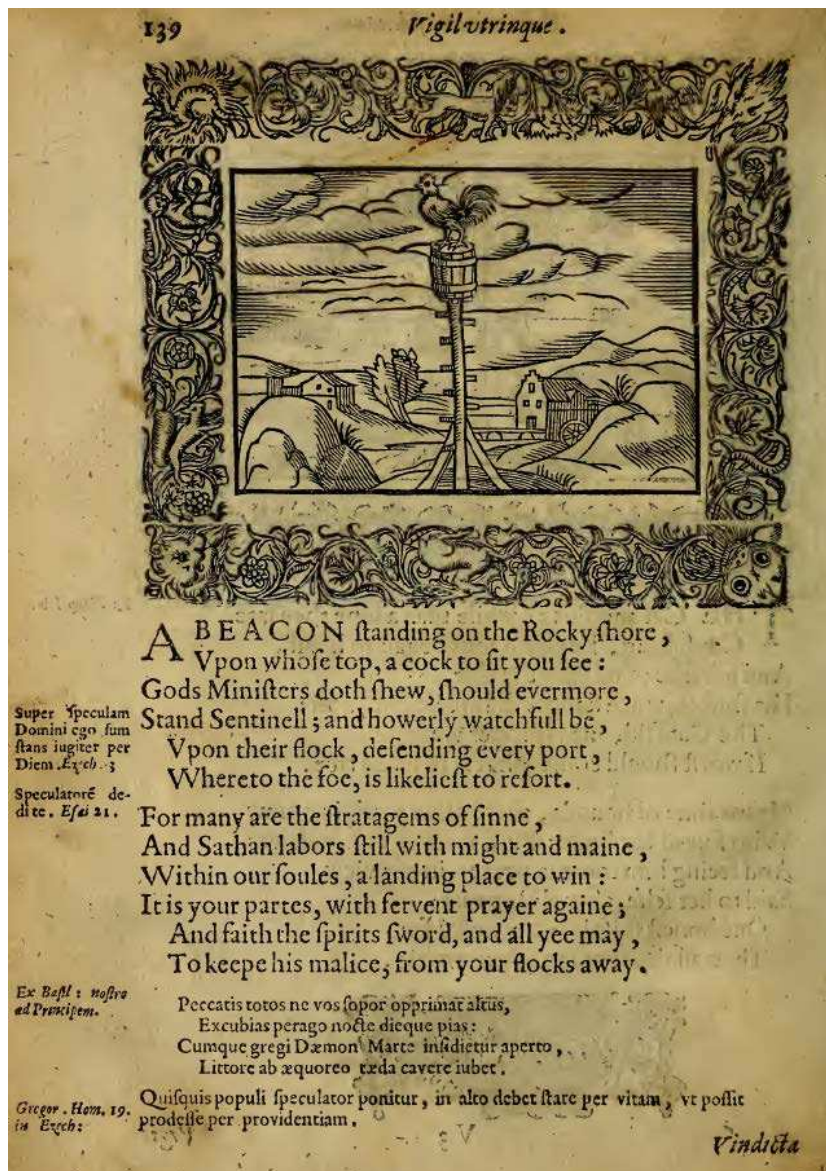 139
Vigil vtrinque.
A BEACON ſtanding on the Rocky ſhore,
Vpon whoſe top, a cock to ſit you ſee:
Gods Miniſters doth ſhew, ſhould evermore,
Super ſpeculam
Domini ego ſum
ſtans iugiter per
Diem. Ezech. 3
Stand Sentinell; and howerly watchfull be,
Vpon their flock, defending every port,
Whereto the foe, is likelieſt to reſort.
Speculatorē de-
dite. Eſai 21.
For many are the ſtratagems of ſinne,
And Sathan labors ſtill with might and maine,
Within our ſoules, a landing place to win:
It is your partes, with fervent prayer againe;
And faith the ſpirits ſword, and all yee may,
To keepe his malice, from your flocks away.
Ex Baſil: noſtro
ad Principem.
Peccatis totos ne vos ſopor opprimat altus,
Excubias perago nocte dieque pias:
Cumque gregi Dæmon Marte inſidietur aperto,
Littore ab æquoreo tæda cavere iubet.
Gregor. Hom. 19.
in Ezech:
Quiſquis populi ſpeculator ponitur, in alto debet ſtare per vitam, vt poſſit
prodeſſe per providentiam.
Vindicta